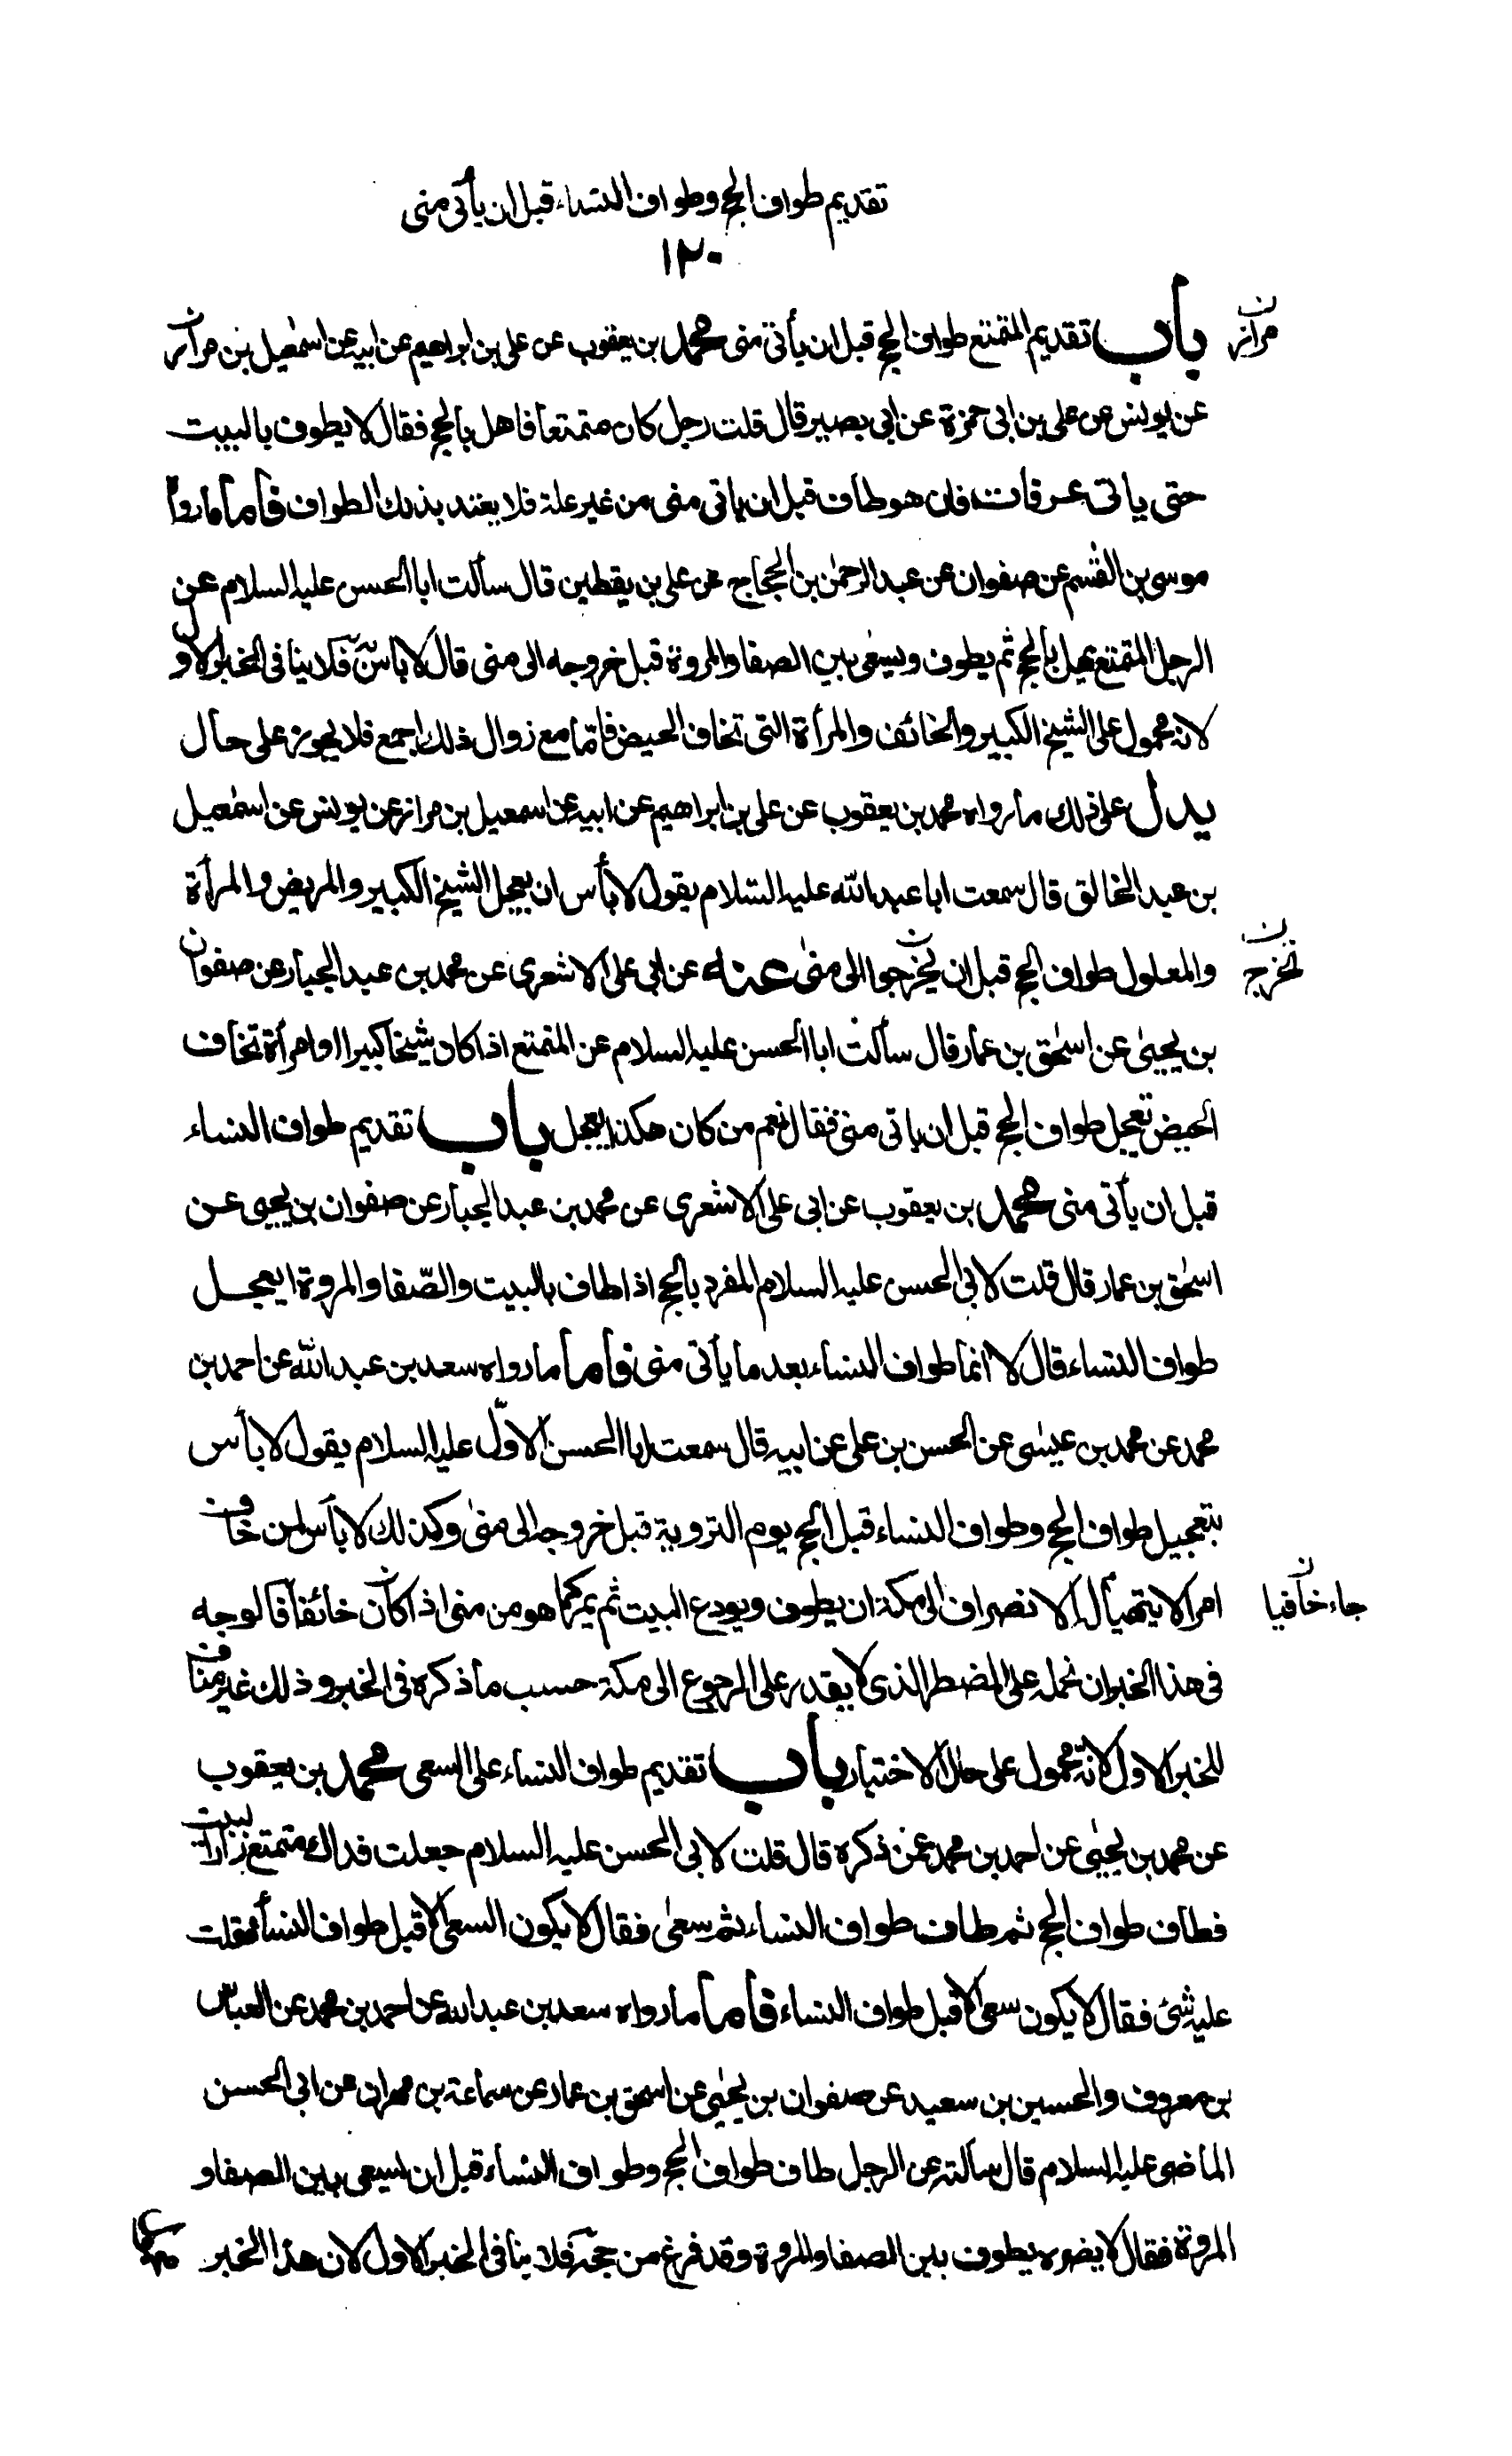 تقديم طواف الحج وطواف النساء قبل ان يأتى منى
١٢٠
باب تقديم المتمتع طواف الحج قبل ان يأتى منى محمد بن يعقوب عن على بن ابراهيم عن ابيه عن اسمعيل بن مرار
مرار ن
عن يونس عن على بن ابى حمزة عن ابى بصير قال قلت رجل كان متمتعا فاهل بالحج فقال لا يطوف بالبيت
حتى ياتى عرفات فان هو طاف قبل ان ياتى منى من غير علة فلا يعتد بذلك الطواف فاما ما رواه
موسى بن القسم عن صفوان عن عبد الرحمن بن الحجاج عن على بن يقطين قال سألت ابا الحسن عليه السلام عن
الرجل المتمتع يهل بالحج ثم يطوف ويسعى بين الصفا والمروة قبل خروجه الى منى قال لا باس به فلا ينافى الخبر الاول
لانه محمول على الشيخ الكبير والخائف والمرأة التى تخاف الحيض فاما مع زوال ذلك اجمع فلا يجوز على حال
يدل على ذلك ما رواه محمد بن يعقوب عن على بن ابراهيم عن ابيه عن اسمعيل بن مرار عن يونس عن اسمعيل
بن عبد الخالق قال سمعت ابا عبد الله عليه السلام يقول لا بأس ان يعجل الشيخ الكبير والمريض والمرأة
والمعلول طواف الحج قبل ان يخرجوا الى منى عنه عن ابى على الاشعرى عن محمد بن عبد الجبار عن صفوان
تخرج ن
بن يحيى عن اسحق بن عمار قال سألت ابا الحسن عليه السلام عن المتمتع اذا كان شيخا كبيرا او امرأة تخاف
الحيض تعجل طواف الحج قبل ان ياتى منى فقال نعم من كان هكذا يعجل باب تقديم طواف النساء
قبل ان يأتى منى محمد بن يعقوب عن ابى على الاشعرى عن محمد بن عبد الجبار عن صفوان بن يحيى عن
اسحق بن عمار قال قلت لابى الحسن عليه السلام المفرد بالحج اذا طاف بالبيت والصفا والمروة ايعجل
طواف النساء قال لا انما طواف النساء بعد ما يأتى منى فاما ما رواه سعد بن عبد الله عن احمد بن
محمد عن محمد بن عيسى عن الحسن بن على عن ابيه قال سمعت ابا الحسن الاول عليه السلام يقول لا بأس
بتعجيل طواف الحج وطواف النساء قبل الحج يوم التروية قبل خروجه الى منى وكذلك لا بأس لمن خاف
امرا لا يتهيأ له الانصراف الى مكة ان يطوف ويودع البيت ثم يمر كما هو من منى اذا كان خائفا فالوجه
جاء خافيا ن
فى هذا الخبر ان نحمله على المضطر الذى لا يقدر على الرجوع الى مكة حسب ما ذكره فى الخبر وذلك غير مناف
للخبر الاول لانه محمول على حال الاختيار باب تقديم طواف النساء على السعى محمد بن يعقوب
عن محمد بن يحيى عن احمد بن محمد عمن ذكره قال قلت لابى الحسن عليه السلام جعلت فداك متمتع زار البيت
فطاف طواف الحج ثم طاف طواف النساء ثم سعى فقال لا يكون السعى الا قبل طواف النساء فقلت
عليه شئ فقال لا يكون سعى الا قبل طواف النساء فاما ما رواه سعد بن عبد الله عن احمد بن محمد عن العباس
بن معروف والحسين بن سعيد عن صفوان بن يحيى عن اسحق بن عمار عن سماعة بن مهران عن ابى الحسن
الماضى عليه السلام قال سألته عن الرجل طاف طواف الحج وطواف النساء قبل ان يسعى بين الصفا و
المروة فقال لا يضره يطوف بين الصفا والمروة وقد فرغ من حجه فلا ينافى الخبر الاول لان هذا الخبر